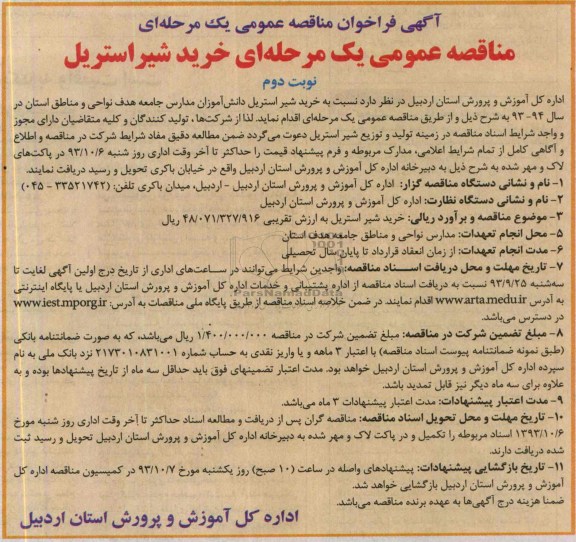 آگهی فراخوان مناقصه عمومی یک مرحله‌ای
مناقصه عمومی یک مرحله‌ای خرید شیر استریل
نوبت دوم
اداره کل آموزش و پرورش استان اردبیل در نظر دارد نسبت به خرید شیر استریل دانش‌آموزان مدارس جامعه هدف نواحی و مناطق استان در
سال ۹۴-۹۳ به شرح ذیل و از طریق مناقصه عمومی یک مرحله‌ای اقدام نماید. لذا از شرکت‌ها، تولید کنندگان و کلیه متقاضیان دارای مجوز
و واجد شرایط اسناد مناقصه در زمینه تولید و توزیع شیر استریل دعوت می‌گردد ضمن مطالعه دقیق مفاد شرایط شرکت در مناقصه و اطلاع
و آگاهی کامل از تمام شرایط اعلامی، مدارک مربوطه و فرم پیشنهاد قیمت را حداکثر تا آخر وقت اداری روز شنبه ۹۳/۱۰/۶ در پاکت‌های
لاک و مهر شده به شرح ذیل به دبیرخانه اداره کل آموزش و پرورش استان اردبیل واقع در خیابان باکری تحویل و رسید دریافت نمایند.
۱- نام و نشانی دستگاه مناقصه گزار: اداره کل آموزش و پرورش استان اردبیل - اردبیل، میدان باکری تلفن: (۳۳۵۲۱۷۴۲ - ۰۴۵)
۲- نام و نشانی دستگاه نظارت: اداره کل آموزش و پرورش استان اردبیل
۳- موضوع مناقصه و برآورد ریالی: خرید شیر استریل به ارزش تقریبی ۴۸/۰۷۱/۳۲۷/۹۱۶ ریال
۵- محل انجام تعهدات: مدارس نواحی و مناطق جامعه هدف استان
۶- مدت انجام تعهدات: از زمان انعقاد قرارداد تا پایان سال تحصیلی
۷- تاریخ مهلت و محل دریافت اسناد مناقصه: واجدین شرایط می‌توانند در ساعت‌های اداری از تاریخ درج اولین آگهی لغایت تا
سه‌شنبه ۹۳/۹/۲۵ نسبت به دریافت اسناد مناقصه از اداره پشتیبانی و خدمات اداره کل آموزش و پرورش استان اردبیل یا پایگاه اینترنتی
به آدرس www.arta.medu.ir اقدام نمایند. در ضمن خلاصه اسناد مناقصه از طریق پایگاه ملی مناقصات به آدرس: www.iest.mporg.ir
در دسترس می‌باشد.
۸- مبلغ تضمین شرکت در مناقصه: مبلغ تضمین شرکت در مناقصه ۱/۴۰۰/۰۰۰/۰۰۰ ریال می‌باشد، که به صورت ضمانتنامه بانکی
(طبق نمونه ضمانتنامه پیوست اسناد مناقصه) با اعتبار ۳ ماهه و یا واریز نقدی به حساب شماره ۲۱۷۳۰۱۰۸۳۱۰۰۱ نزد بانک ملی به نام
سپرده اداره کل آموزش و پرورش استان اردبیل خواهد بود. مدت اعتبار تضمینهای فوق باید حداقل سه ماه از تاریخ پیشنهادها بوده و به
علاوه برای سه ماه دیگر نیز قابل تمدید باشد.
۹- مدت اعتبار پیشنهادات: مدت اعتبار پیشنهادات ۳ ماه می‌باشد.
۱۰- تاریخ مهلت و محل تحویل اسناد مناقصه: مناقصه گران پس از دریافت و مطالعه اسناد حداکثر تا آخر وقت اداری روز شنبه مورخ
۱۳۹۳/۱۰/۶ اسناد مربوطه را تکمیل و در پاکت لاک و مهر شده به دبیرخانه اداره کل آموزش و پرورش استان اردبیل تحویل و رسید ثبت
شده دریافت دارند.
۱۱- تاریخ بازگشایی پیشنهادات: پیشنهادهای واصله در ساعت (۱۰ صبح) روز یکشنبه مورخ ۹۳/۱۰/۷ در کمیسیون مناقصه اداره کل
آموزش و پرورش استان اردبیل بازگشایی خواهد شد.
ضمنا هزینه درج آگهی‌ها به عهده برنده مناقصه می‌باشد.
اداره کل آموزش و پرورش استان اردبیل